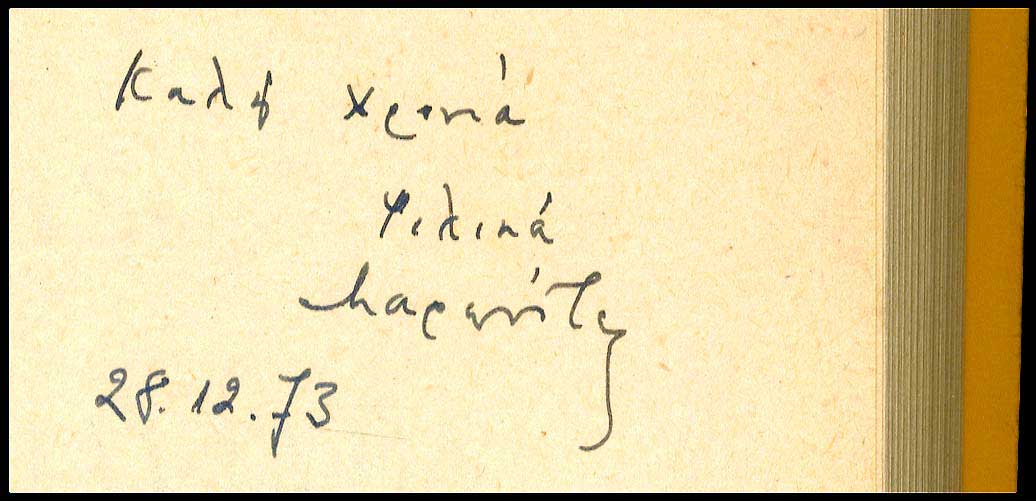 Καλή χρονιά
Φιλικά
Μαρωνίτης
28.12.73